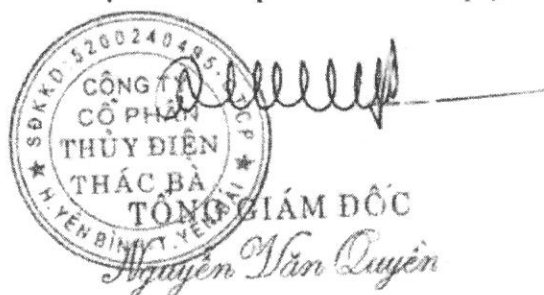 SĐKKD:5200240495-CTCP
CÔNG TY
CỔ PHẦN
THỦY ĐIỆN
THÁC BÀ
H.YÊN BÌNH-T.YÊN BÁI
TỔNG GIÁM ĐỐC
Nguyễn Văn Quyền